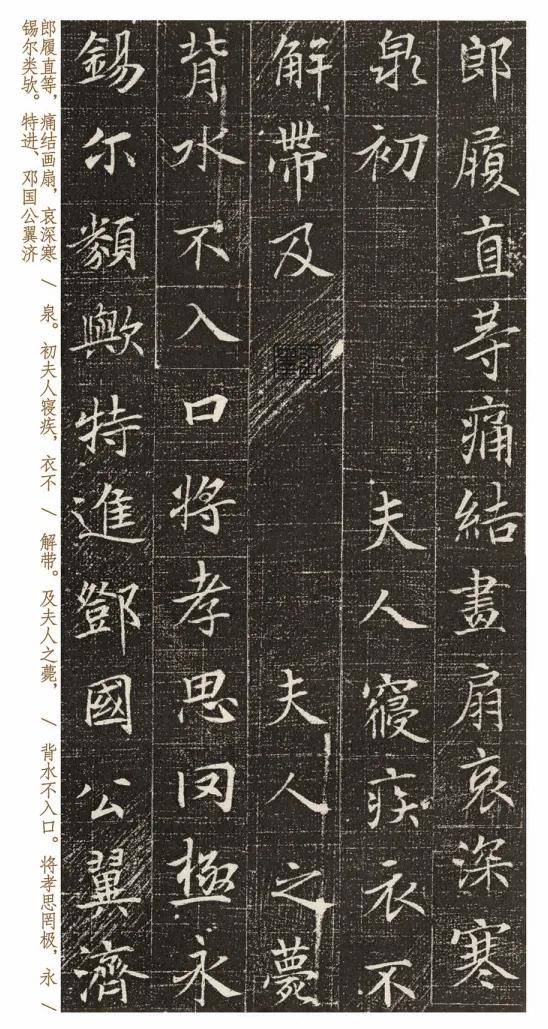 郎履直等痛結畫扇哀深寒
泉初 夫人寑疾衣不
解帶及 夫人之薨
背水不入口將孝思罔極永
錫尔類歟特進鄧國公翼濟
郎履直等，痛结画扇，哀深寒 / 泉。初夫人寝疾，衣不 / 解带。及夫人之薨， / 背水不入口。将孝思罔极，永 /
锡尔类欤。特进、邓国公翼济